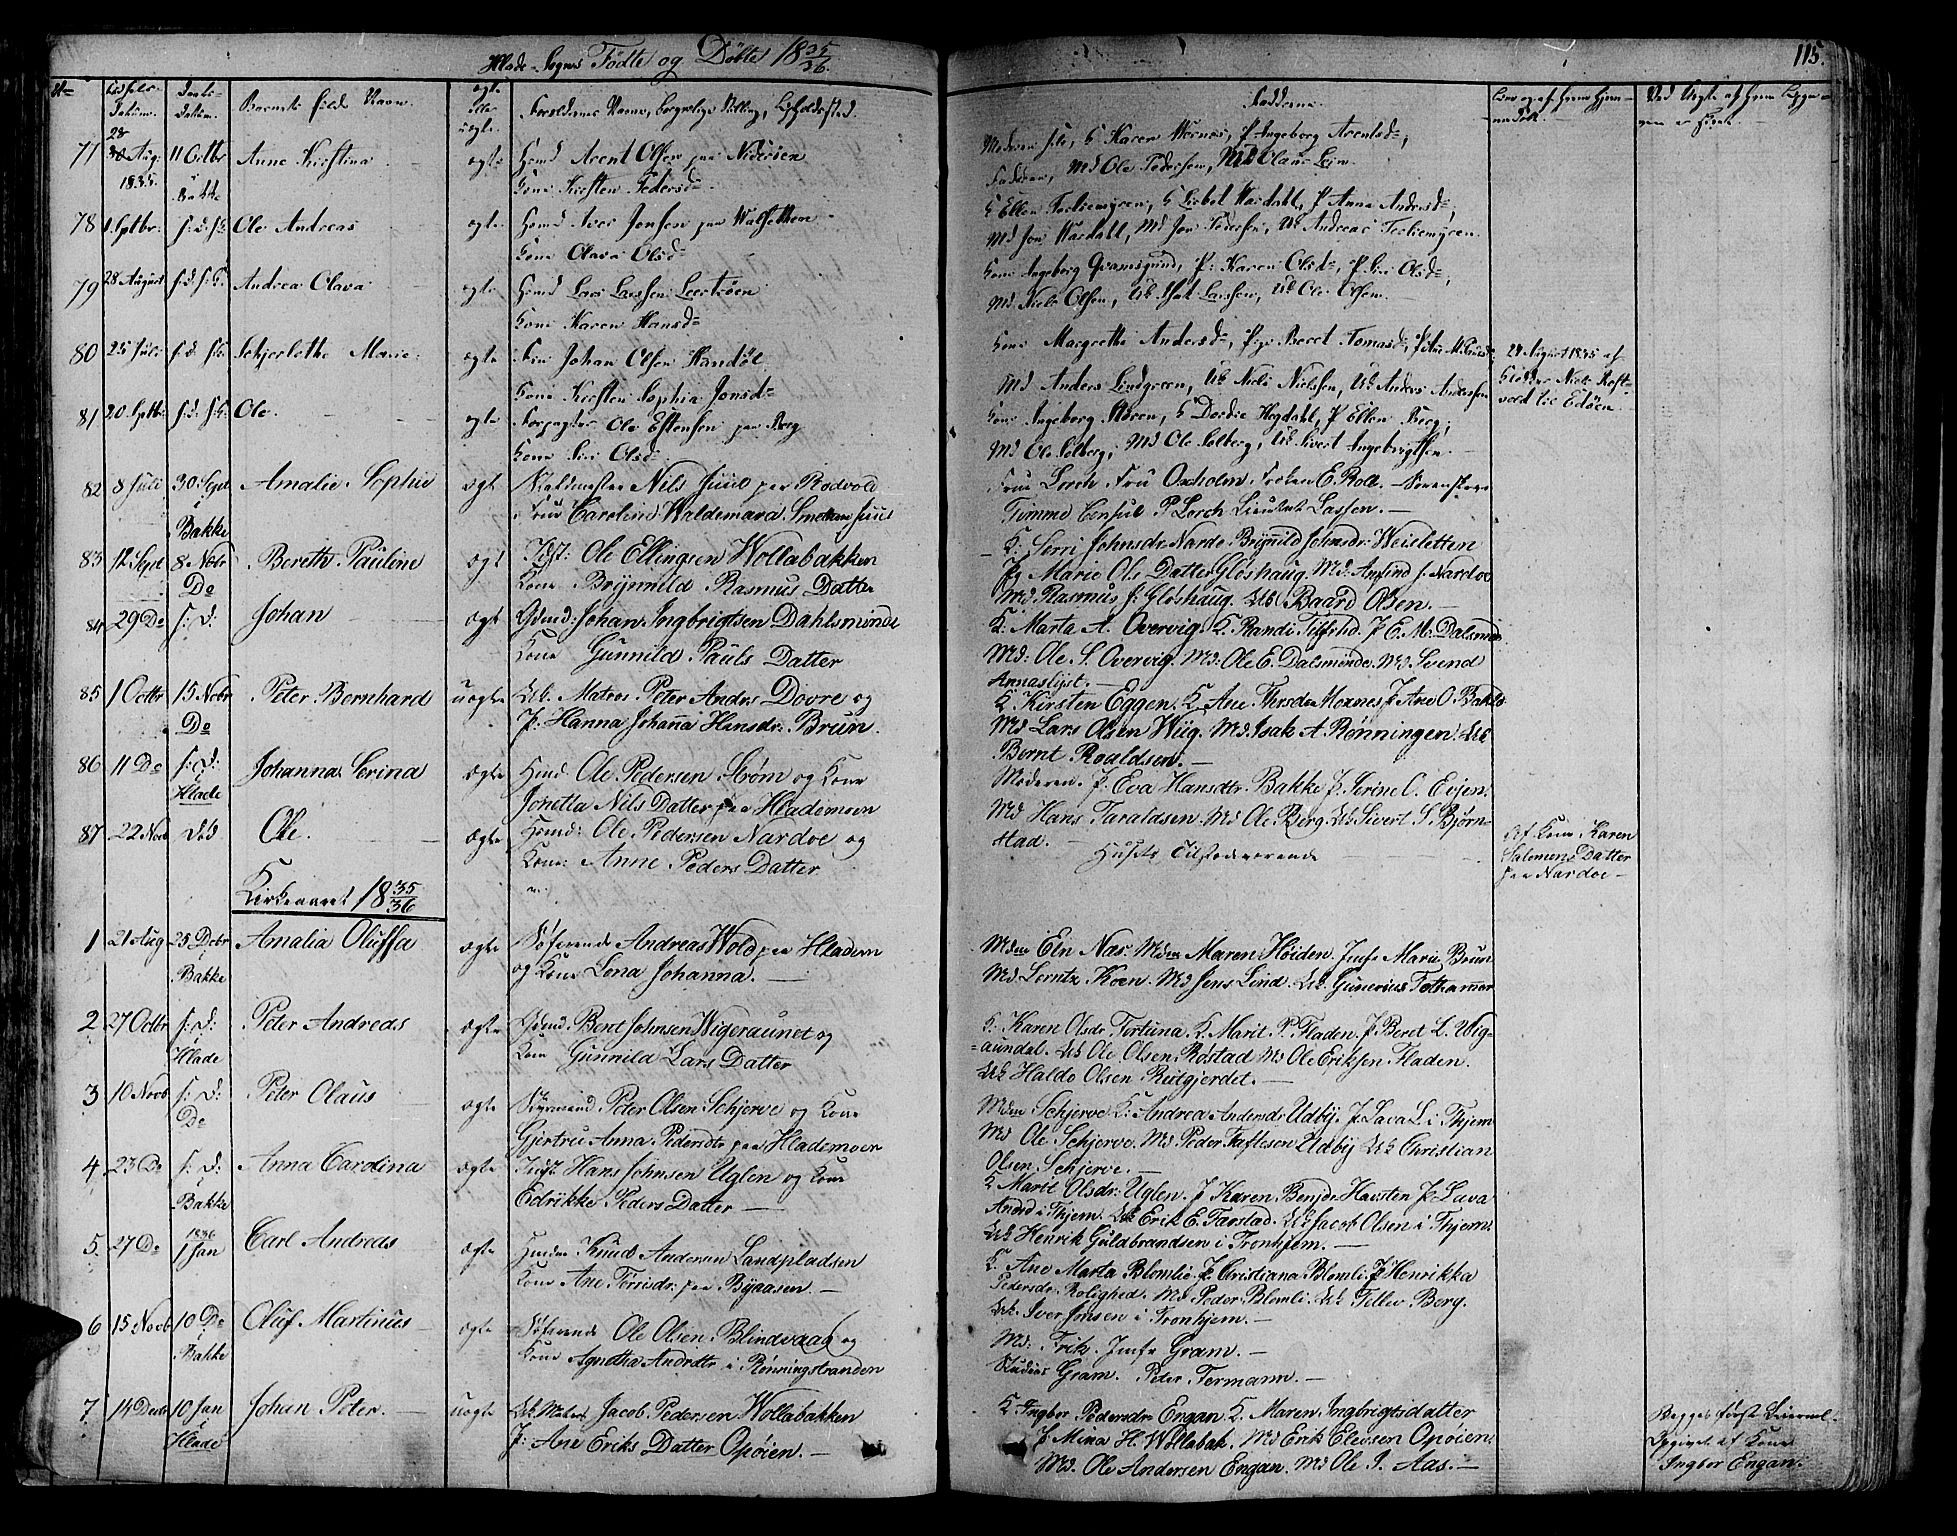 Hlade-Sogns Fødte og Døbte 18 35/36.
115.
Barnets fulde Navn
ægte eller uægte
Forældrenes Navne, borgerlige Stilling, Opholdssted.
Fadderne.
71 28 Aug. 1835. 11 Octbr i Bakke Anne Kirstina ægte Hmd Arent Olsen paa Niderøen
Kone Kirsten Pedersd=
Moderen selv, K Karen Moxnes, P Ingeborg Arentsd=,
Faderen, Md Ole Pedersen, Md Claus Lein
78 1 Sptbr. s: d: s: K: Ole Andreas ægte Hmd Iver Jonsen paa Walsetten
Kone Olava Olsd=
Md Jon Wardahl, Md Jon Pedersen, Uk Andreas
79 28 August s: d: s: K: Andrea Olava ægte Hmd Lars Larssen Leertrøen
Kone Karen Hansd=
Kone Ingeborg Qvamsgrind, P: Karen Olsd=, P. Siri Olsd=,
Md Niels Olsen, Uk Isak Larssen, Uk Ole Olsen.
80 25 Juli s: d: s: K: Marie ægte Johan Olsen Handøl
Kone Kirsten Sophia Jonsd=
Kone Margrethe Andersd=, Pige Beret Tomasd=,
Md Anders Lindgreen, Uk Niels Nielssen, Uk Anders Andersen
28 August 1835 af
Klokker Niels
81 20 Sptbr. s: d: s: K: Ole ægte Forpagter Ole Estensen paa Berg
Kone Siri Olsd=
Kone Ingeborg Støren, K Dordie Hegdahl, P Ellen Berg,
Md Ole Solberg, Md Ole Solberg, Uk Sivert Ingebrigtsen
82 8 Juli 30 Sept i Bakke Amalie Sophie ægt Nils Juul paa Rodvold
Frue Caroline Waldemara Juul
Frue Lorch. Fru Oxholm. Frøken E. Roll. Sorenskriver
Tumme Consul P Lorch Lieutnt Lassen.
83 12 Sept 8 Novbr Do Bereth Pauline ægt Idst: Ole Ellingsen Wollabakken
Kone Brynnild Rasmus Datter
K. Serri Johnsdr Nardo. Brynnild Johnsdr: Weisletten
Pg Marie Ols Datter Gløshaug. Md: Amund J. Nardoe
Md: Rasmus J: Gløshaug. Uk Baard Olsen.
84 29 Do s: d: Johan ægt Gdmd: Johan Ingbrigtsen Dahlsminde
Kone Gunnild Pauls Datter
K: Marta A. Overvig. K. Randi P E. M. Dalsmin
Md: Ole S. Overvig. Md: Ole E. Dalsminde. Md: Svend
Annaslyst.
85 1 Octbr 15 Novbr Do Peter Bernhard uægte Uk. Matros Peter Andrs Dovre og
P: Hanna Johanna Hansdr: Brun.
K Kirsten Eggen. K. Ane Moxnes P Ane O. Bakke
Md Lars Olsen Wiig. Md. Isak A. Rønningen. Uk
Bernt Roaldsen.
86 11 Do s: d: i Hlade Johanna Serina ægte Hmd. Ole Pedersen Strøm og Kone
Jonetta Nils Datter paa Hlademoen
Moderen. P. Eva Hansdtr. Bakke P. Serine C. Evjen
Md Hans Taraldsen. Md Ole Berg. Uk Sivert S. Bjørn-
stad.
87 22 Nov død Ole. ægte Hsmd: Ole Pedersen Nardoe og
Kone: Anne Peders Datter
Husets Tilstedeværende
Af Kone Karen
Salemons Datter
paa Nardoe
Kirkeaaret 18 35/36
1 21 Aug 25 Decbr i Bakke Amalia Oluffa ægte Søfarende Andreas Wold paa Hladem
og Kone Lena Johanna.
Mdm Eln Næs. Mdm Maren Høiden. Jmfr Marie Brun
Md. Lorntz Koen. Md Jens Lind. Uk. Gunerius Tothammer
2 27 Octbr s: d: i Hlade Peter Andreas ægte Gdmd. Bent Johnsen Wigeraunet og
Kone Gunnild Lars Datter
K. Karen Olsdr Fortuna. K. Marit P. Fladen. P. Beret L. Wig-
=aundal. Uk Ole Olsen Rostad Md Ole Eriksen Fladen.
Uk Haldo Olsen Rutgjerdet.
3 10 Novb s: d: Do Peter Olaus ægte Styrmand Peter Olsen Schjerve og Kone
Gjertru Anna Pedersdtr paa Hlademoen
Mdm Schjerve K: Andrea Andersdr Udby. P. Lava L i Thjem
Md Ole Schjerve. Md Peder Taftesen Udby Uk Christian
Olsen Schjerve.
4 23 Do s: d: i Bakke Anna Carolina ægte Indst. Hans Johnsen Uglen og Kone
Edrikke Peders Datter
K Marit Olsdr: Uglen. P Karen Benjdr Havsten P: Lava
Andrd i Thjem. Uk Erik E. Tarstad. Uk Jacob Olsen i Thjem
Uk Henrik Guldbrandsen i Tronhjem.
5. 27 Do 1836 1 Jan Carl Andreas ægte Husmd Knud Andersen Landpladsen
Kone Ane Torrisdr: paa Byaasen.
K. Ane Marta Blomlie. P. Christiana Blomli P Henrikka
Pedersdr. Rolighed. Md Peder Blomli. Uk Tellev Berg.
Uk. Iver Jonsen i Tronhjem.
6 15 Novb 10 Do i Bakke Oluf Martinus ægte Søfarende Ole Olsen Blindvaag og
Kone Agnetha Andrdtr i Rønningstranden
Md: Frik. Jmfr Gram.
Studios Gram. Peder Termann.
7. 14 Decbr 10 Jan i Hlade Johan Peter. uægte Uk Jacob Pedersen Wollabakken
P: Ane Eriks Datter Opøien.
K Ingbor Pedersdr Engan K. Maren Ingbrigtsdatter
P Mina H. Wollabak. Md Erik Elevsen Opøien.
Md. Ole Andersen Engan. Md Ole I. Aas.
Begges første Leierml.
Opgivet af Kone
Ingbor Engan.